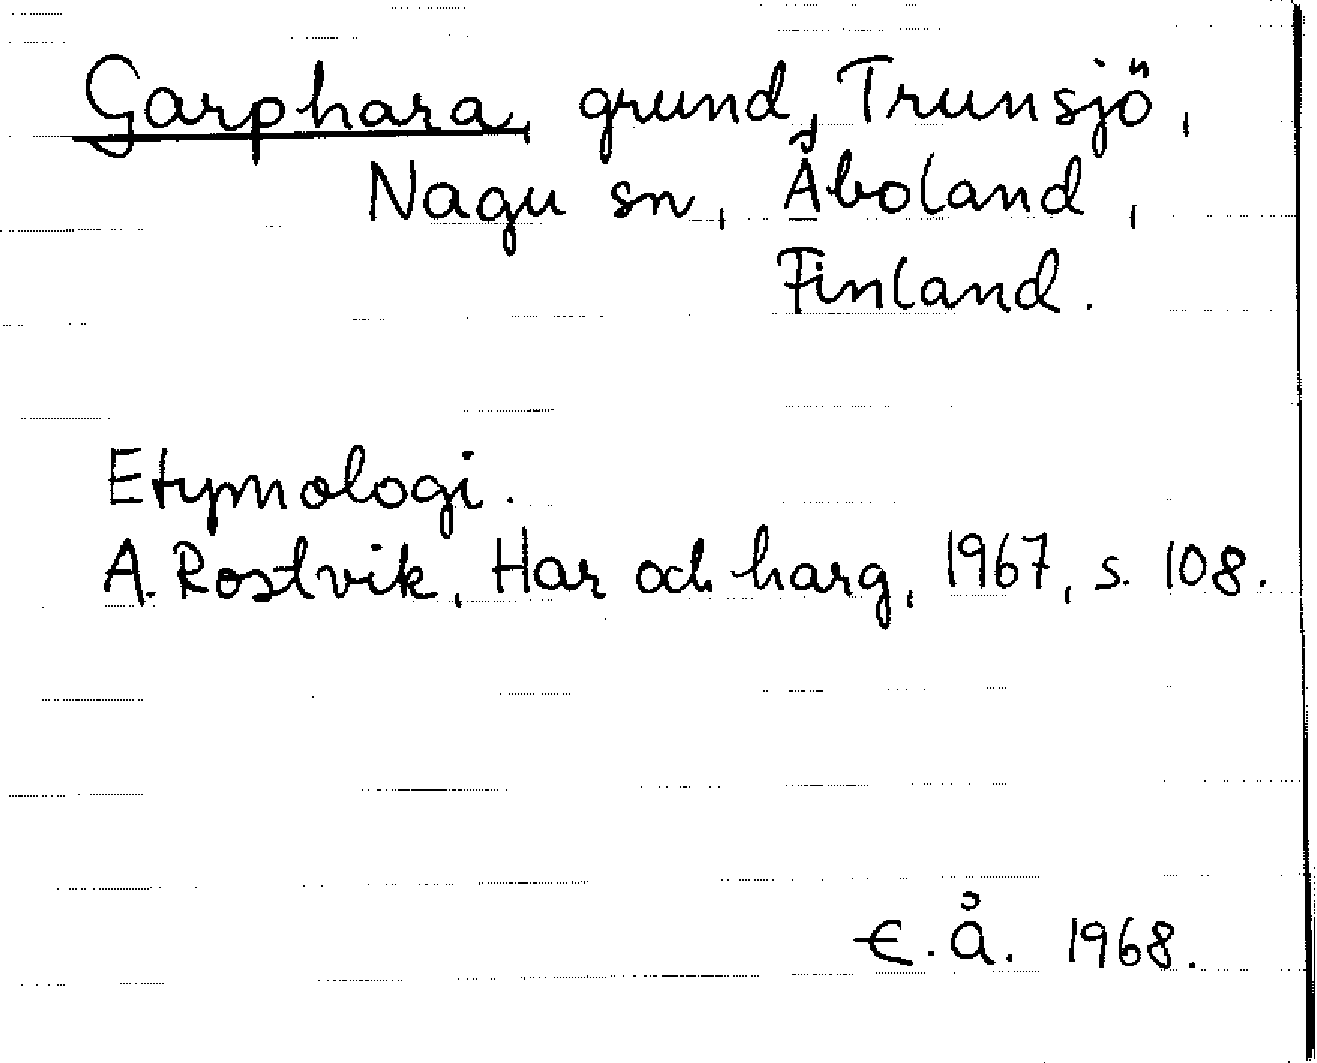 Garphara, grund, Trunsjö,
Nagu sn, Åboland,
Finland.
Etymologi.
A. Rostvik, Har och harg, 1967, s. 108.
E. Å. 1968.